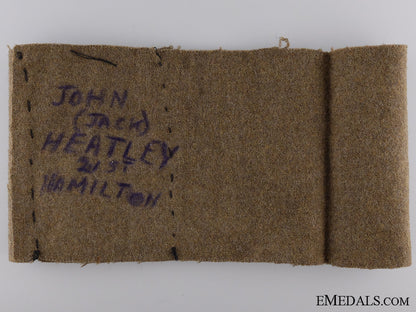 JOHN
(JACK)
HEATLEY
21 ST
HAMILTON
EMEDALS.COM